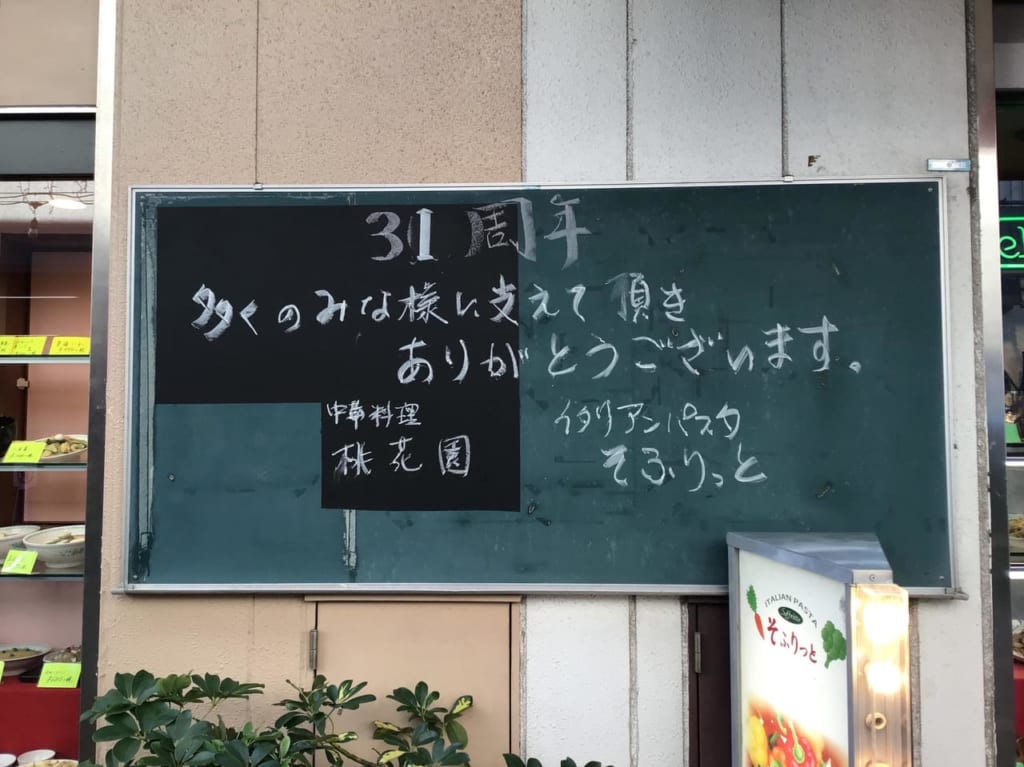 31周年
多くのみな様に支えて頂き
ありがとうございます。
中華料理
桃花園
イタリアンパスタ
そふりっと
ITALIAN PASTA
そふりっと